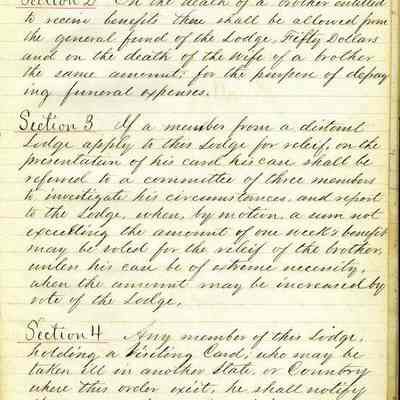 Section 2 On the death of a brother entitled
to receive benefits there shall be allowed from
the general fund of the Lodge, Fifty Dollars
and on the death of the Wife of a brother
the same amount; for the purpose of defray
ing funeral expenses.
Section 3 If a member from a distant
Lodge apply to this Lodge for relief, on the
presentation of his card his case shall be
referred to a committee of three members
to investigate his circumstances, and report
to the Lodge, when, by motion, a sum not
exceeding the amount of one week's benefit
may be voted for the releif of the brother,
unless his case be of extreme necessity,
when the amount may be increased by
vote of the Lodge.
Section 4 Any member of this Lodge,
holding a Visiting Card, who may be
taken ill in another State, or Country
where this order exist, he shall notify